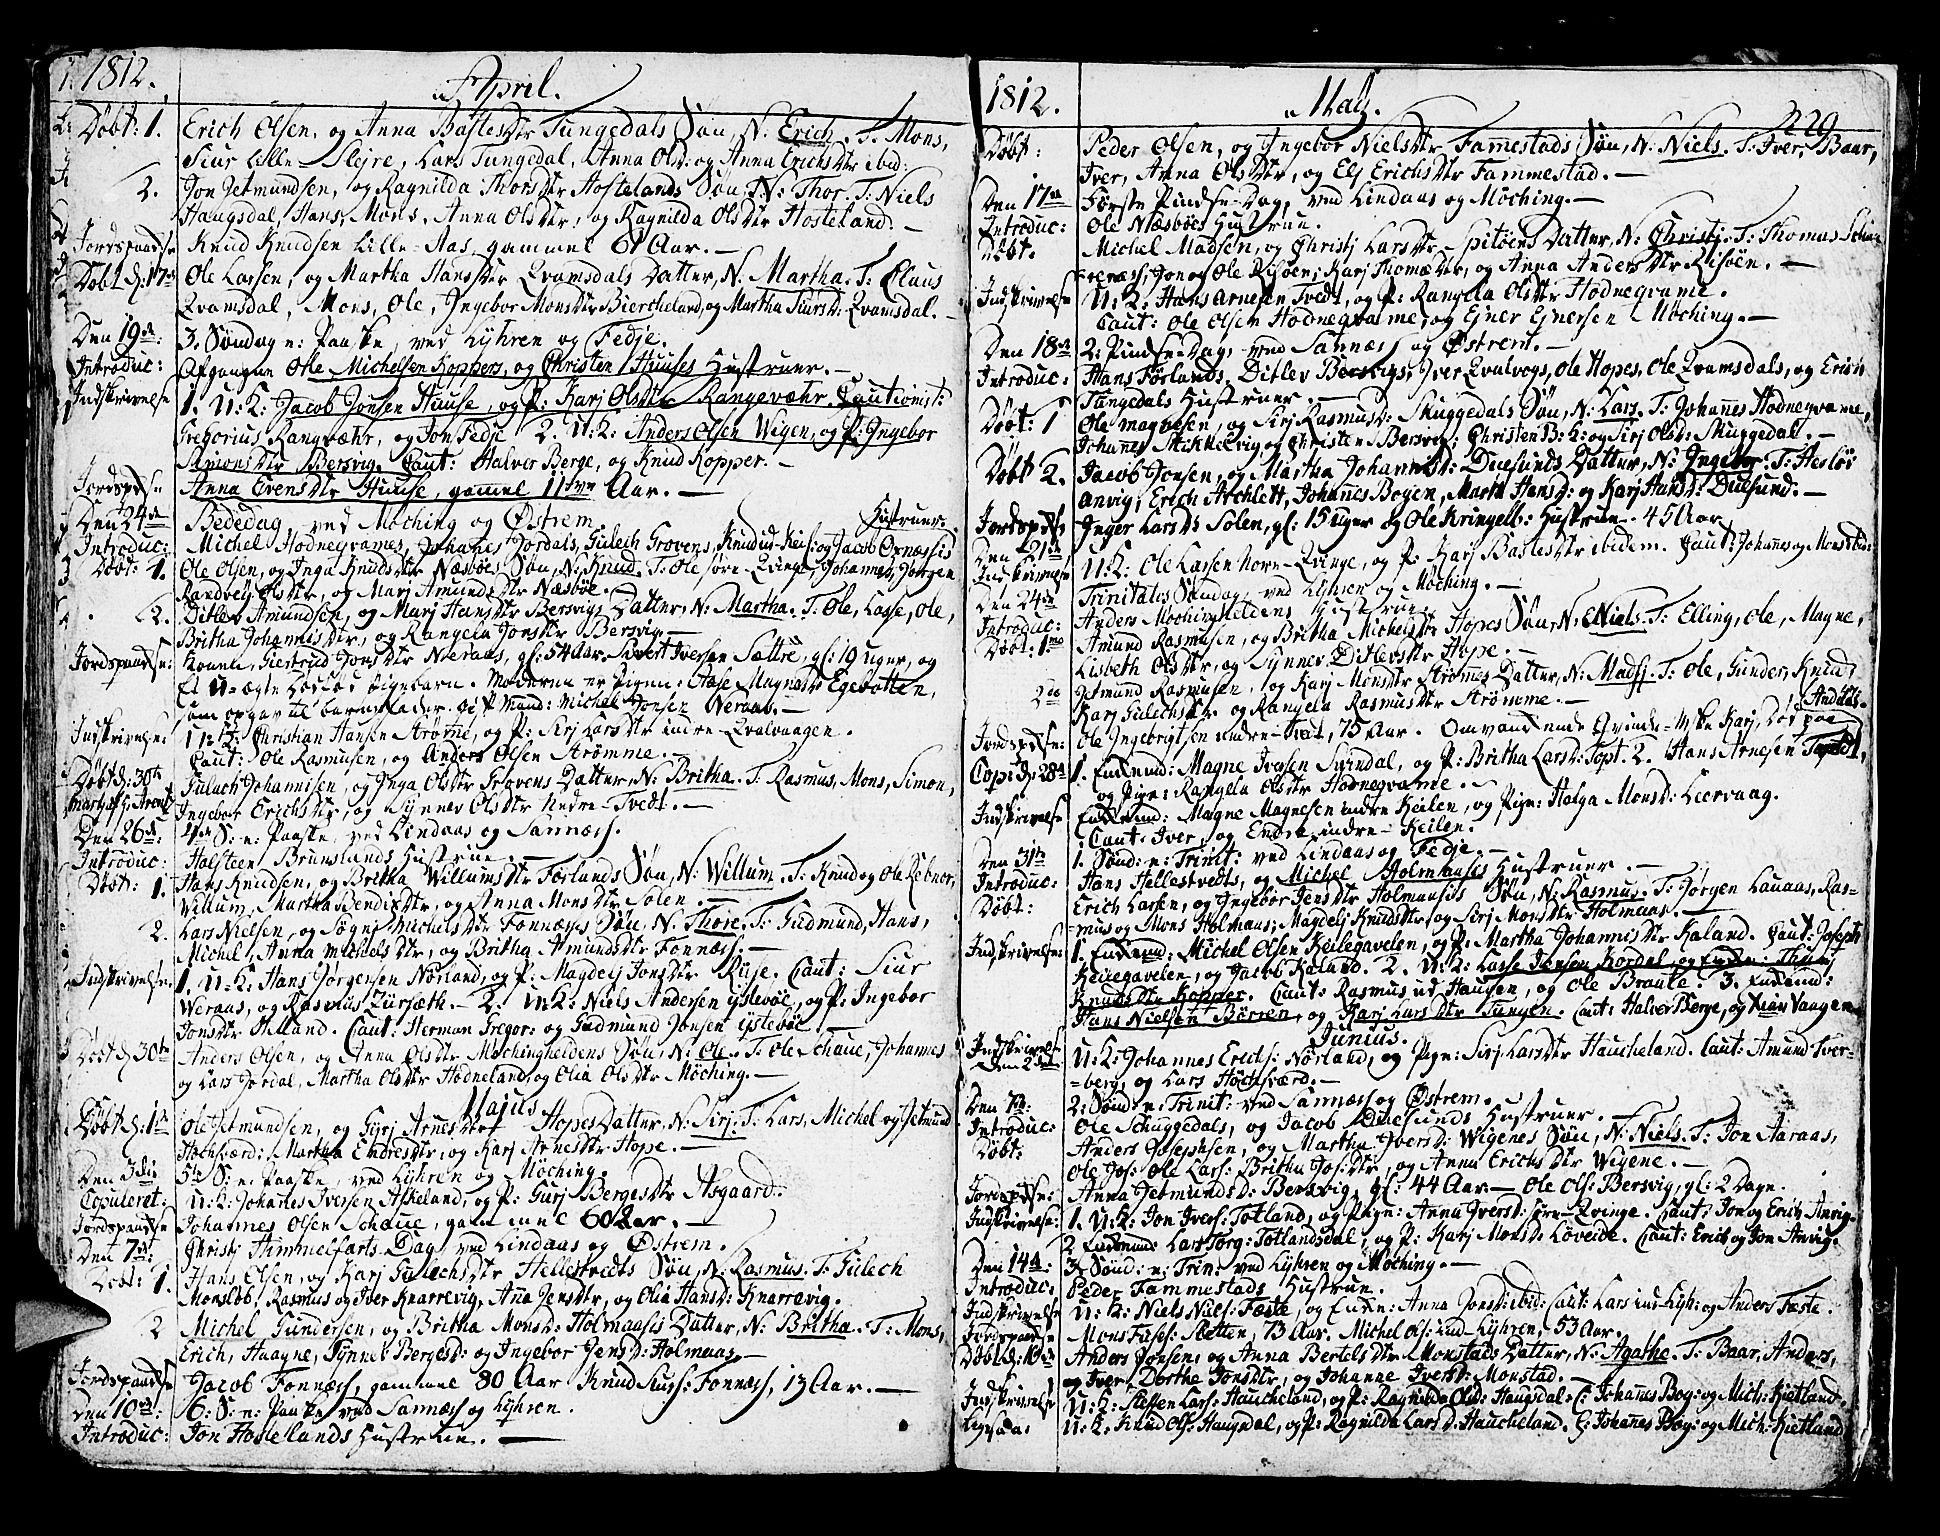 1812. April.
Døbt: 1. Erich Olsen, og Anna Bastesdtr Tungedals Søn, N: Erich. T: Mons,
Siur Lille-Slejre, Lars Tungedal, Anna Olsd: og Anna Erichsdtr ibid:
2. Jon Jetmundsen, og Ragnilda Thorsdtr Hostelands Søn, N: Thor. T: Niels
Haugsdal, Hans, Mons, Anna Olsdtr, og Ragnilda Olsdtr Hosteland. -
Jordspaadse Knud Knudsen Lille-Aas, gammel 61 Aar. -
Døbt d: 17de Ole Larsen, og Martha Hansdtr Qvamsdals Datter, N: Martha. T: Claus
Qvamsdal, Mons, Ole, Ingebor Monsdtr Biercheland, og Martha Siursd: Qvamsdal. -
Den 19de: 3. Søndag e: Paaske, ved Lyhren og Fedje.
Introduc: Afgangne Ole Michelsen Koppers, og Christen Huuses Hustruer. -
Indskrivelse 1. U: K: Jacob Jonsen Huuse, og P: Karj Olsdtr Rangevæhr. Cautionist:
Gregorius Rangevæhr, og Jon Fedje 2. U: K: Anders Olsen Wigen, og P: Ingebor
Simonsdtr Bersvig. Caut: Halver Berge, og Knud Kopper. -
Jordspdse Anna Evensdtr Huuse, gammel 11 Aar. -
Den 24de Bededag, ved Møching og Østrem. Hustruer.
Introduc: Michel Hodnegvames, Johanes Jordals, Gulech Grovens, Knud og Jacob
Døbt: 1. Ole Olsen, og Inga Knudsdtr Næsbøes Søn, N: Knud. T: Ole søre-Qvinge, Johannes, Jørgen
Randvej Olsdtr, og Marj Amundsdtr Næsbøe. -
2. Ditlev Amundsen, og Marj Hansdtr Bersvigs Datter, N: Martha. T: Ole, Lasse, Ole,
Britha Johannisdtr, og Rangela Jonsdtr Bersvig. -
Jordspaadse: Giertrud Jonsdtr Neraas, gl: 54 Aar. Sivert Iversen Sættre, gl: 19 uger, og
Et U-ægte Pigebarn. Moderen er Pigen: Aase Magnedtr Egebotten,
som opgav til barnefader Michel Jonsen Neraas. -
Indskrivelse: 1 U: K: Christian Hansen Strømme, og P: Sirj Larsdtr indre-Qvalvaagen.
Caut: Ole Rasmusen, og Anders Olsen Strømme. -
Døbt d: 30te Gulach Johannisen, og Inga Olsdtr Grovens Datter, N: Britha. T: Rasmus, Mons, Simon,
Ingebor Erichsdtr, og Synnev Olsdtr Nedre-Tvedt. -
Den 26de: 4de S: e: Paaske, ved Lindaas og Sannæss.
Introduc: Halsteen Brumlands Hustrue. -
Døbt: 1. Hans Knudsen, og Britha Willumsdtr Førlands Søn, N: Willum. T: Knud og Ole Rebnor,
Willum, Martha Bendixdtr, og Anna Monsdtr Solen. -
2. Lars Nielsen, og Søgni Michelsdtr Fonnæss Søn, N: Thore. T: Gudmund, Hans,
Michel, Anna Michelsdtr, og Britha Amundsdtr Fonnæss. -
Indskrivelse: 1. U: K: Hans Jørgensen Nørland, og P: Magdelj Jonsdtr Rise. Caut: Siur
Weraas, og Rasmus Qursæth. - 2. U: K: Niels Andersen ystebøe, og P: Ingebor
Jonsdtr Hilland. Caut: Herman Gregor: og Gudmund Jonsen ystebøe
Døbt d: 30te Anders Olsen, og Anna Olsdtr Møchingheldens Søn, N: Ole. T: Ole Schaue, Johannes
og Lars Jordal, Martha Olsdtr Hodneland, og Olia Olsdtr Møching. -
Majus
Døbt d: 1te Ole Jetmundsen, og Gyrj Arnesdtr Hopes Datter, N: Sirj. T: Lars, Michel og Jetmund
Hochsværd: Martha Endresdtr, og Karj Arnesdtr Hope. -
Den 3die 5te S: e: Paaske, ved Lyhren og Møching.
Copuleret: U: K: Johannes Iversen Askeland, og P: Gurj Bergesdtr Asgaard.
Jordspaadse Johannes Olsen Schaue, gammel 60 Aar. -
Den 7de Christj Himmelfarts-Dag, ved Lindaas og Østrem.
Døbt: 1. Hans Olsen, og Karj Gulechsdtr Hellestvedts Søn, N: Rasmus. T: Gulech
Monsløb, Rasmus og Iver Knarrevig, Ana Jensdtr, og Olia Hansd: Knarrevig.
2 Michel Gundersen, og Britha Monsd: Holmaasis Datter, N: Britha. T: Mons,
Erich, Haagne, Synnev Bergesd: og Ingebor Jensd: Holmaas. -
Jordspaadse Jacob Fonnæss, gammel 80 Aar Knud Siurs: Fonnæss, 13 Aar. -
Den 10de: 6. S: e: Paaske ved Sannæss og Lyhren.
Introduc: Jon Hostelands Hustrue. -
1812. Maj. 229
Døbt: Peder Olsen, og Ingebor Nielsdtr Fammestads Søn, N: Niels. T: Iver, Baar,
Iver, Anna Olsdtr, og Els Erichsdtr Fammestad. -
Den 17de Første Pindse-Dag, ved Lindaas og Møching. -
Introduc: Ole Næsbøes Hustrue.
Døbt. Michel Madsen, og Christj Larsdtr Spitøens Datter, N: Christj. T: Thomas
Jon og Ole Risøen, Karj Thomædtr, og Anna Andersdtr Risøen. -
Indskrivelse U: K: Hans Arnesen Tvedt, og P: Rangela Olsdtr Hodnegvame.
Caut: Ole Olsen Hodnegvame, og Ejner Ejnersen Møching. -
Den 18de 2: Pindse-Dag, ved Sannæss og Østrem. -
Introduc: Hans Førlands, Ditlev Bersvigs, Iver Qvalvogs, Ole Hopes, Ole Qvamsdals, og Erich
Tungedals Hustruer. -
Døbt: 1 Ole Magnesen, og Siri Rasmusd: Skuggedals Søn, N: Lars. T: Johannes Hodnegvame,
Johannes Mikkelvig, og Christen Bersvig; Christen B: K: og Sirj Olsd: Skuggedal. -
Døbt 2. Jacob Jonsen, og Martha Johannisd: Duesunds Datter, N: Ingebor. T: Hesløs
Anvig, Erich Aichlett, Johannes Bogen, Marta Hansd: og Karj Hansd: Duesund. -
Jordspdse Inger Larsd: Solen, gl: 15 uger og Ole Kringelb: Hustrue. 45 Aar
Den 21de
Indskrivelse U: K: Ole Larsen Nore-Qvinge, og P: Karj Bastesdtr ibidem. Caut: Johannes og Mons ibid:
Den 24de Trinitatis Søndag, ved Lyhren og Møching. -
Introduc: Anders Møchingheldens Hustrue.
Døbt: 1mo Amund Rasmusen, og Britha Michelsdtr Hopes Søn, N: Niels. T: Elling, Ole, Magne,
Lisbeth Olsdtr, og Synnev Ditlevsdtr Hope. -
2do Jetmund Rasmusen, og Karj Monsdtr Strømmes Datter, N: Madsj. T: Ole, Gunder, Knud,
Karj Gulechsdtr og Rangela Rasmusdtr Strømme. -
Jordspdse: Ole Ingebrigtsen 75 Aar. Omvandrende Qvinde-Mske Karj, død paa
Cop: d: 28de 1. Enkemd: Magne Iversen Sundal, og P: Britha Larsd: Topt. 2. Hans Arnesen Tvedt,
og Pige: Rangela Olsdtr Hodnegvame. -
Indskrivelse Enkemd: Magne Magnesen indre Keilen, og Pige: Helga Monsd: Leervaag.
Caut: Iver, og Endre indre-Keilen.
Den 31te 1. Sønd: e: Trinit: ved Lindaas og Fedje. -
Introduc: Hans Hellestvedts, og Michel Holmaasis Hustruer. -
Døbt: Erich Larsen, og Ingebor Jensdtr Holmaasis Søn, N: Rasmus. T: Jørgen Lauaas, Ras-
mus og Mons Holmaas; Magdelj Knudsdtr, og Sirj Monsdtr Holmaas. -
Indskrivelse: 1. Enkemd: Michel Olsen Keilegavelen, og P: Martha Johannisdtr Kaland. Caut: Joseph
Keilegavelen, og Jacob Kaland. 2. U: K: Lasse Jensen Kordal, og Enke:
Knudsdtr Kopper. Caut: Rasmus ud Haugen, og Ole Braute. 3. Enkemd:
Hans Nielsen Børren, og Karj Larsdtr Tungen. Caut: Halver Berge, og Vaagen
Junius.
Indskrivelse
Den 2den U: K: Johannes Erichs: Nørland, og Pige: Sirj Larsdtr Haucheland. Caut: Amund Sver-
=berg, og Lars Hochsværd. -
Den 7de: 2: Sønd: e: Trinit: ved Sannæss og Østrem. -
Introduc: Ole Schuggedals, og Jacob Duesunds Hustruer.
Døbt: Anders Josephsen, og Martha Iversd: Wigenes Søn, N: Niels. T: Jon Aaraas,
Ole Jos: Ole Lars: Britha Jos:dtr, og Anna Erichsdtr Wigene. -
Jordspdse: Anna Jetmundsd: Bersvig, gl: 44 Aar - Ole Ols: Bersvig, gl: 2 Dage.
Indskrivelse: 1. U: K: Jon Ivers: Totland, og Pige: Anna Iversd: søre-Qvinge. Caut: Jon og Erich Anvig.
2 Enkemd: Lars Jørg: Totlandsdal, og P: Karj Monsd: Loveide. Caut: Erich og Jon Anvig.
Den 14de 3. Sønd: e: Trin: ved Lyhren og Møching. -
Introduc: Peder Fammestads Hustrue.
Indskrivelse U: K: Niels Niels: Fæste, og Enke: Anna Jonsd: ibid: Caut: Lars ind-Lyhr: og Anders Fæste.
Jordspaadse Mons Sletten, 73 Aar. Michel Ols: ind-Lyhren, 53 Aar.
Døbt d: 16de Anders Jonsen, og Anna Bertelsdtr Monstads Datter, N: Agathe. T: Baar, Anders,
og Iver Dorthe Jonsdtr, og Johanne Iversd: Monstad. -
Indskrivelse U: K: Steffen Lars: Haucheland, og P: Ragnilda Olsd: Haugsdal. C: Johannes Bog: og Mich: Kietland.
U: K: Knud Ols: Haugsdal, og P: Ragnilda Larsd: Haucheland. C: Johannes Bog: og Mich: Kietland